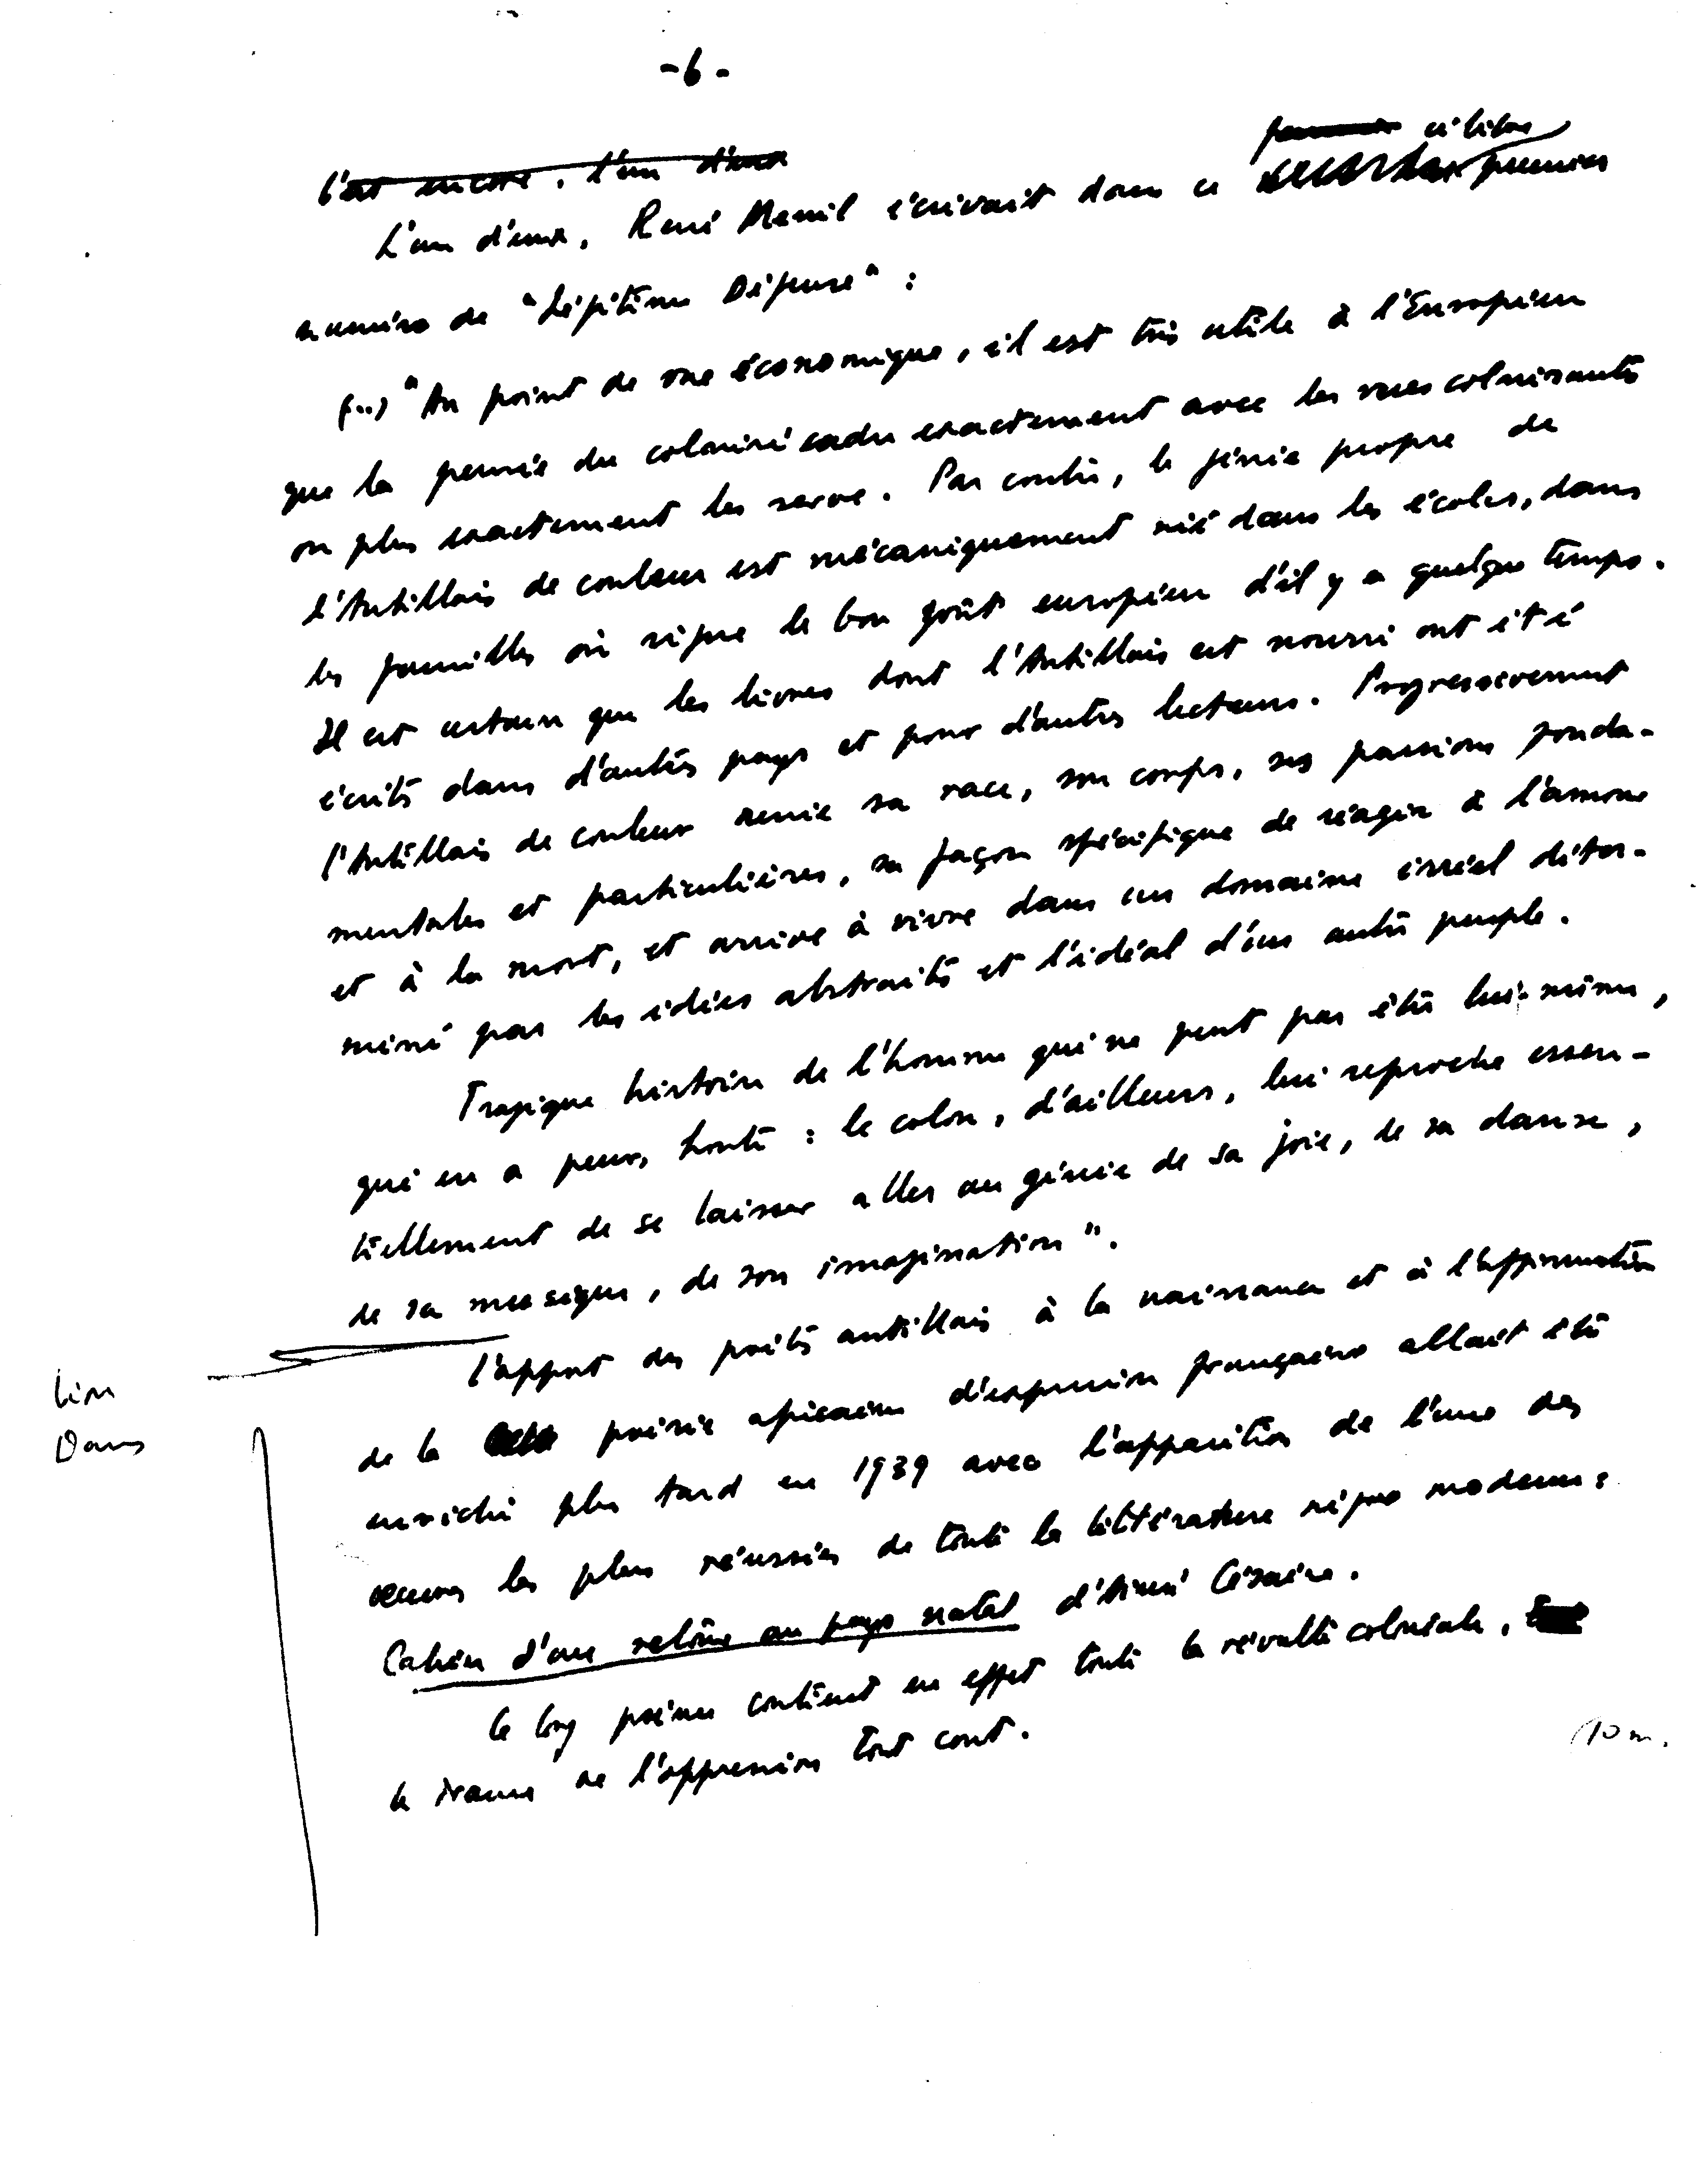 -6-
C'est encore, l'un d'eux
célèbre
L'un d'eux, René Menil écrivait dans ce premier
numéro de "Légitime Défense" :
(...) "Au point de vue économique, il est très utile à l'Européen
que la pensée du colonisé cadre exactement avec les vues colonisantes
ou plus exactement les serve. Par contre, le génie propre de
l'Antillais de couleur est mécaniquement nié dans les écoles, dans
les familles où règne le bon goût européen d'il y a quelque temps.
Il est certain que les livres dont l'Antillais est nourri ont été
écrits dans d'autres pays et pour d'autres lecteurs. Progressivement
l'Antillais de couleur renie sa race, son corps, ses passions fonda-
mentales et particulières, sa façon spécifique de réagir à l'amour
et à la mort, et arrive à vivre dans un domaine irréel déter-
miné par les idées abstraites et l'idéal d'un autre peuple.
Tragique histoire de l'homme qui ne peut pas être lui-même,
qui en a peur, honte : le colon, d'ailleurs, lui reproche essen-
tiellement de se laisser aller au génie de sa joie, de sa danse,
de sa musique, de son imagination".
l'apport des poètes antillais à la naissance et à l'affirmation
de la poésie africaine d'expression française allait être
enrichi plus tard en 1939 avec l'apparition de l'une des
oeuvres les plus réussies de toute la littérature nègre moderne :
Cahier d'un retour au pays natal d'Aimé Césaire.
Ce long poème contient en effet toute la révolte coloniale,
le drame de l'oppression tout court.
lire
Dans
10 m.